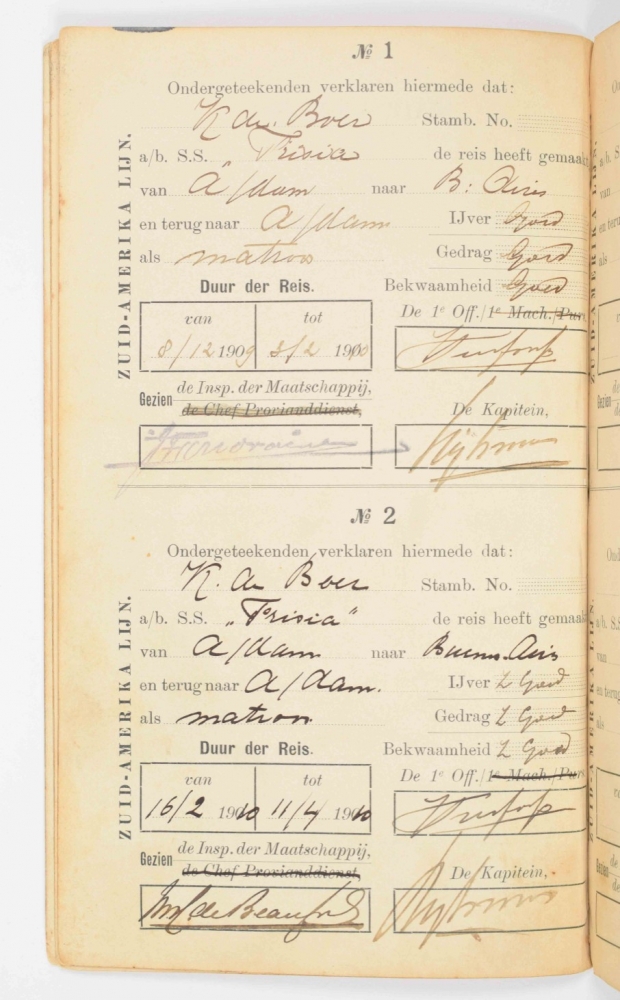 № 1
Ondergeteekenden verklaren hiermede dat:
K de Boer Stamb. No.
a/b. S.S. „Frisia de reis heeft gemaakt
van A/dam naar B: Aires
en terug naar A/dam IJver Goed
als matroos Gedrag Goed
Duur der Reis. Bekwaamheid Goed
van tot De 1e Off./1e Mach./Purs.
8/12 1909 8/2 1910
Gezien de Insp. der Maatschappij,
de Chef Proviantdienst, De Kapitein,
ZUID-AMERIKA LIJN.
№ 2
Ondergeteekenden verklaren hiermede dat:
K. de Boer Stamb. No.
a/b. S.S. „Frisia” de reis heeft gemaakt
van A/dam naar Buenos Aires
en terug naar A/dam. IJver Z Goed
als matroos Gedrag Z Goed
Duur der Reis. Bekwaamheid Z Goed
van tot De 1e Off./1e Mach./Purs.
16/2 1910 11/4 1910
Gezien de Insp. der Maatschappij,
de Chef Proviantdienst, De Kapitein,
de Beaufort
ZUID-AMERIKA LIJN.